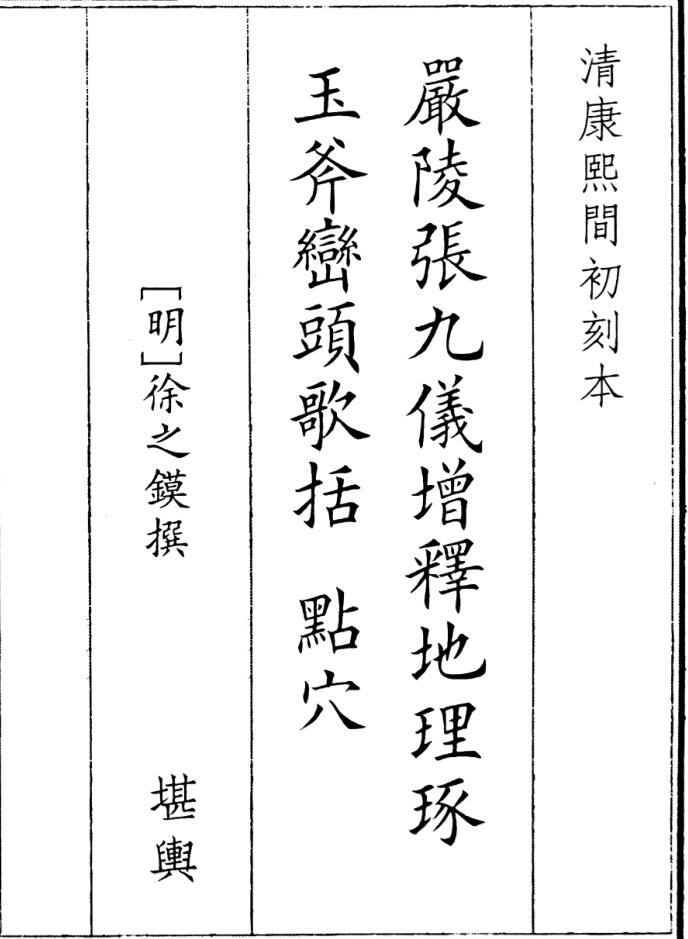 清康熙間初刻本
嚴陵張九儀增釋地理琢
玉斧巒頭歌括　點穴
［明］徐之鏌撰
堪輿